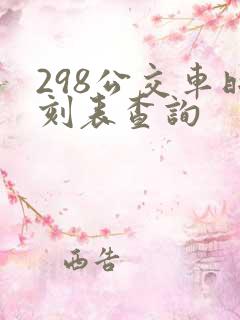 298公交車時
刻表查詢
西告